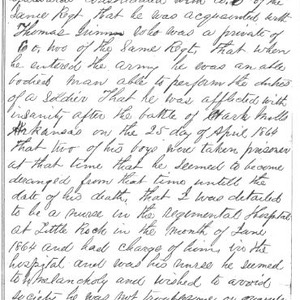 Same Regt, that he was acquainted with
Thomas who was a private of
Co, two of the Same Regt, that when
he entered the army he was an able
bodied man able to perform the duties
of a Soldier That he was afflicted with
insanity after the battle of Mark Mills
Arkansas on the 25 day of April 1864
that two of his boys were taken prisoner
at that time that he seemed to become
deranged from that time untill the
date of his death, that I was detailed
to be a nurse in the Regimental Hospital
at Little Rock in the Month of June
1864 and had charge of him in the
hospital and was his nurse he seemed
to Melancholy and wished to avoid
society he was not troublesome or